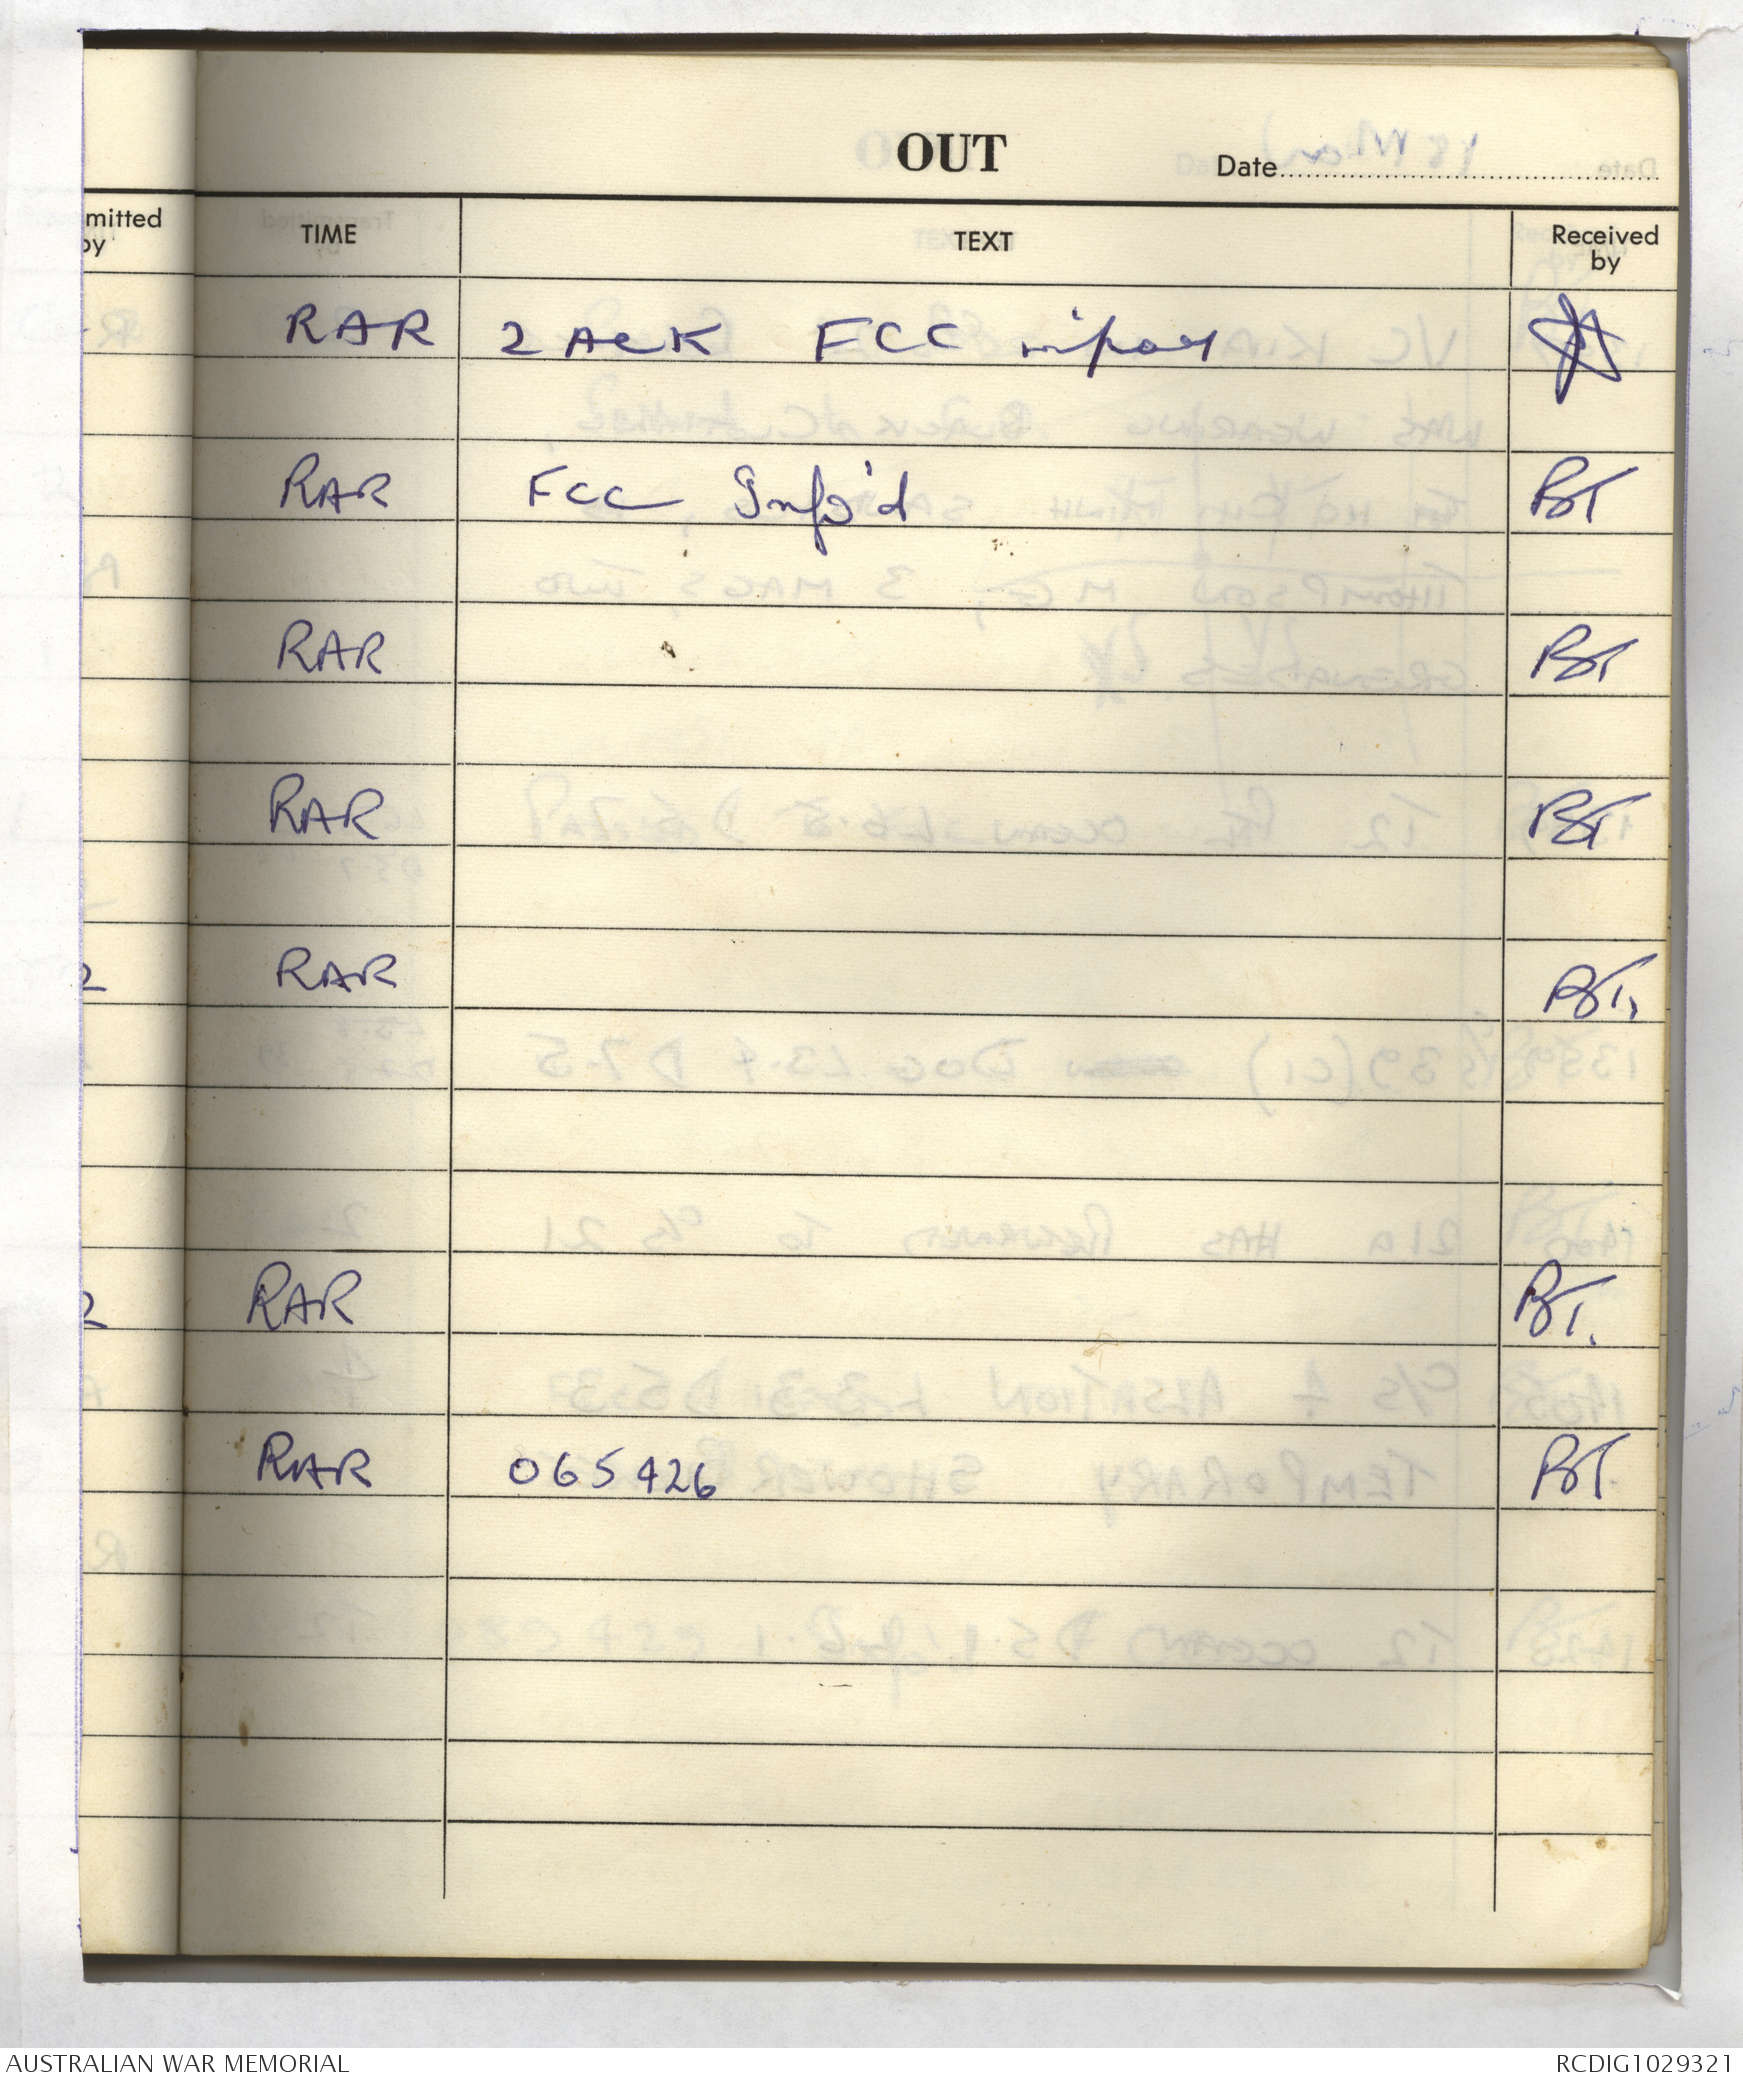 OUT
Date
mitted by
TIME
TEXT
Received by
RAR 2 ACK FCC
RAR FCC Info'd BT
RAR BT
RAR BT
2 RAR BT.
2 RAR BT.
RAR 065426 BT.
AUSTRALIAN WAR MEMORIAL
RCDIG1029321